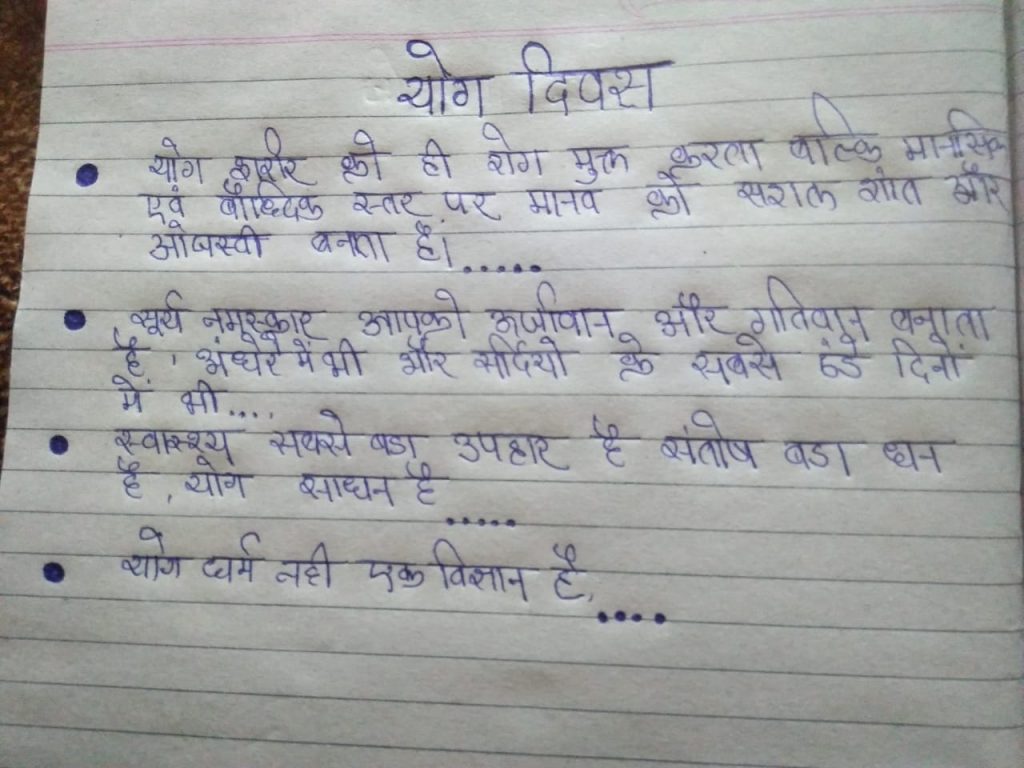 योग दिवस
• योग शरीर को ही रोग मुक्त करता बल्कि मानसिक
एवं बौध्दिक स्तर पर मानव को सशक्त शांत और
ओजस्वी बनता है।.....
• सूर्य नमस्कार आपको ऊर्जावान और गतिवान बनाता
है, अंधेरे में भी और सर्दियो के सबसे ठंडे दिनों
में भी....
• स्वास्थ्य सबसे बडा उपहार है संतोष बडा धन
है, योग साधन है
.....
• योग धर्म नही एक विज्ञान है,
....